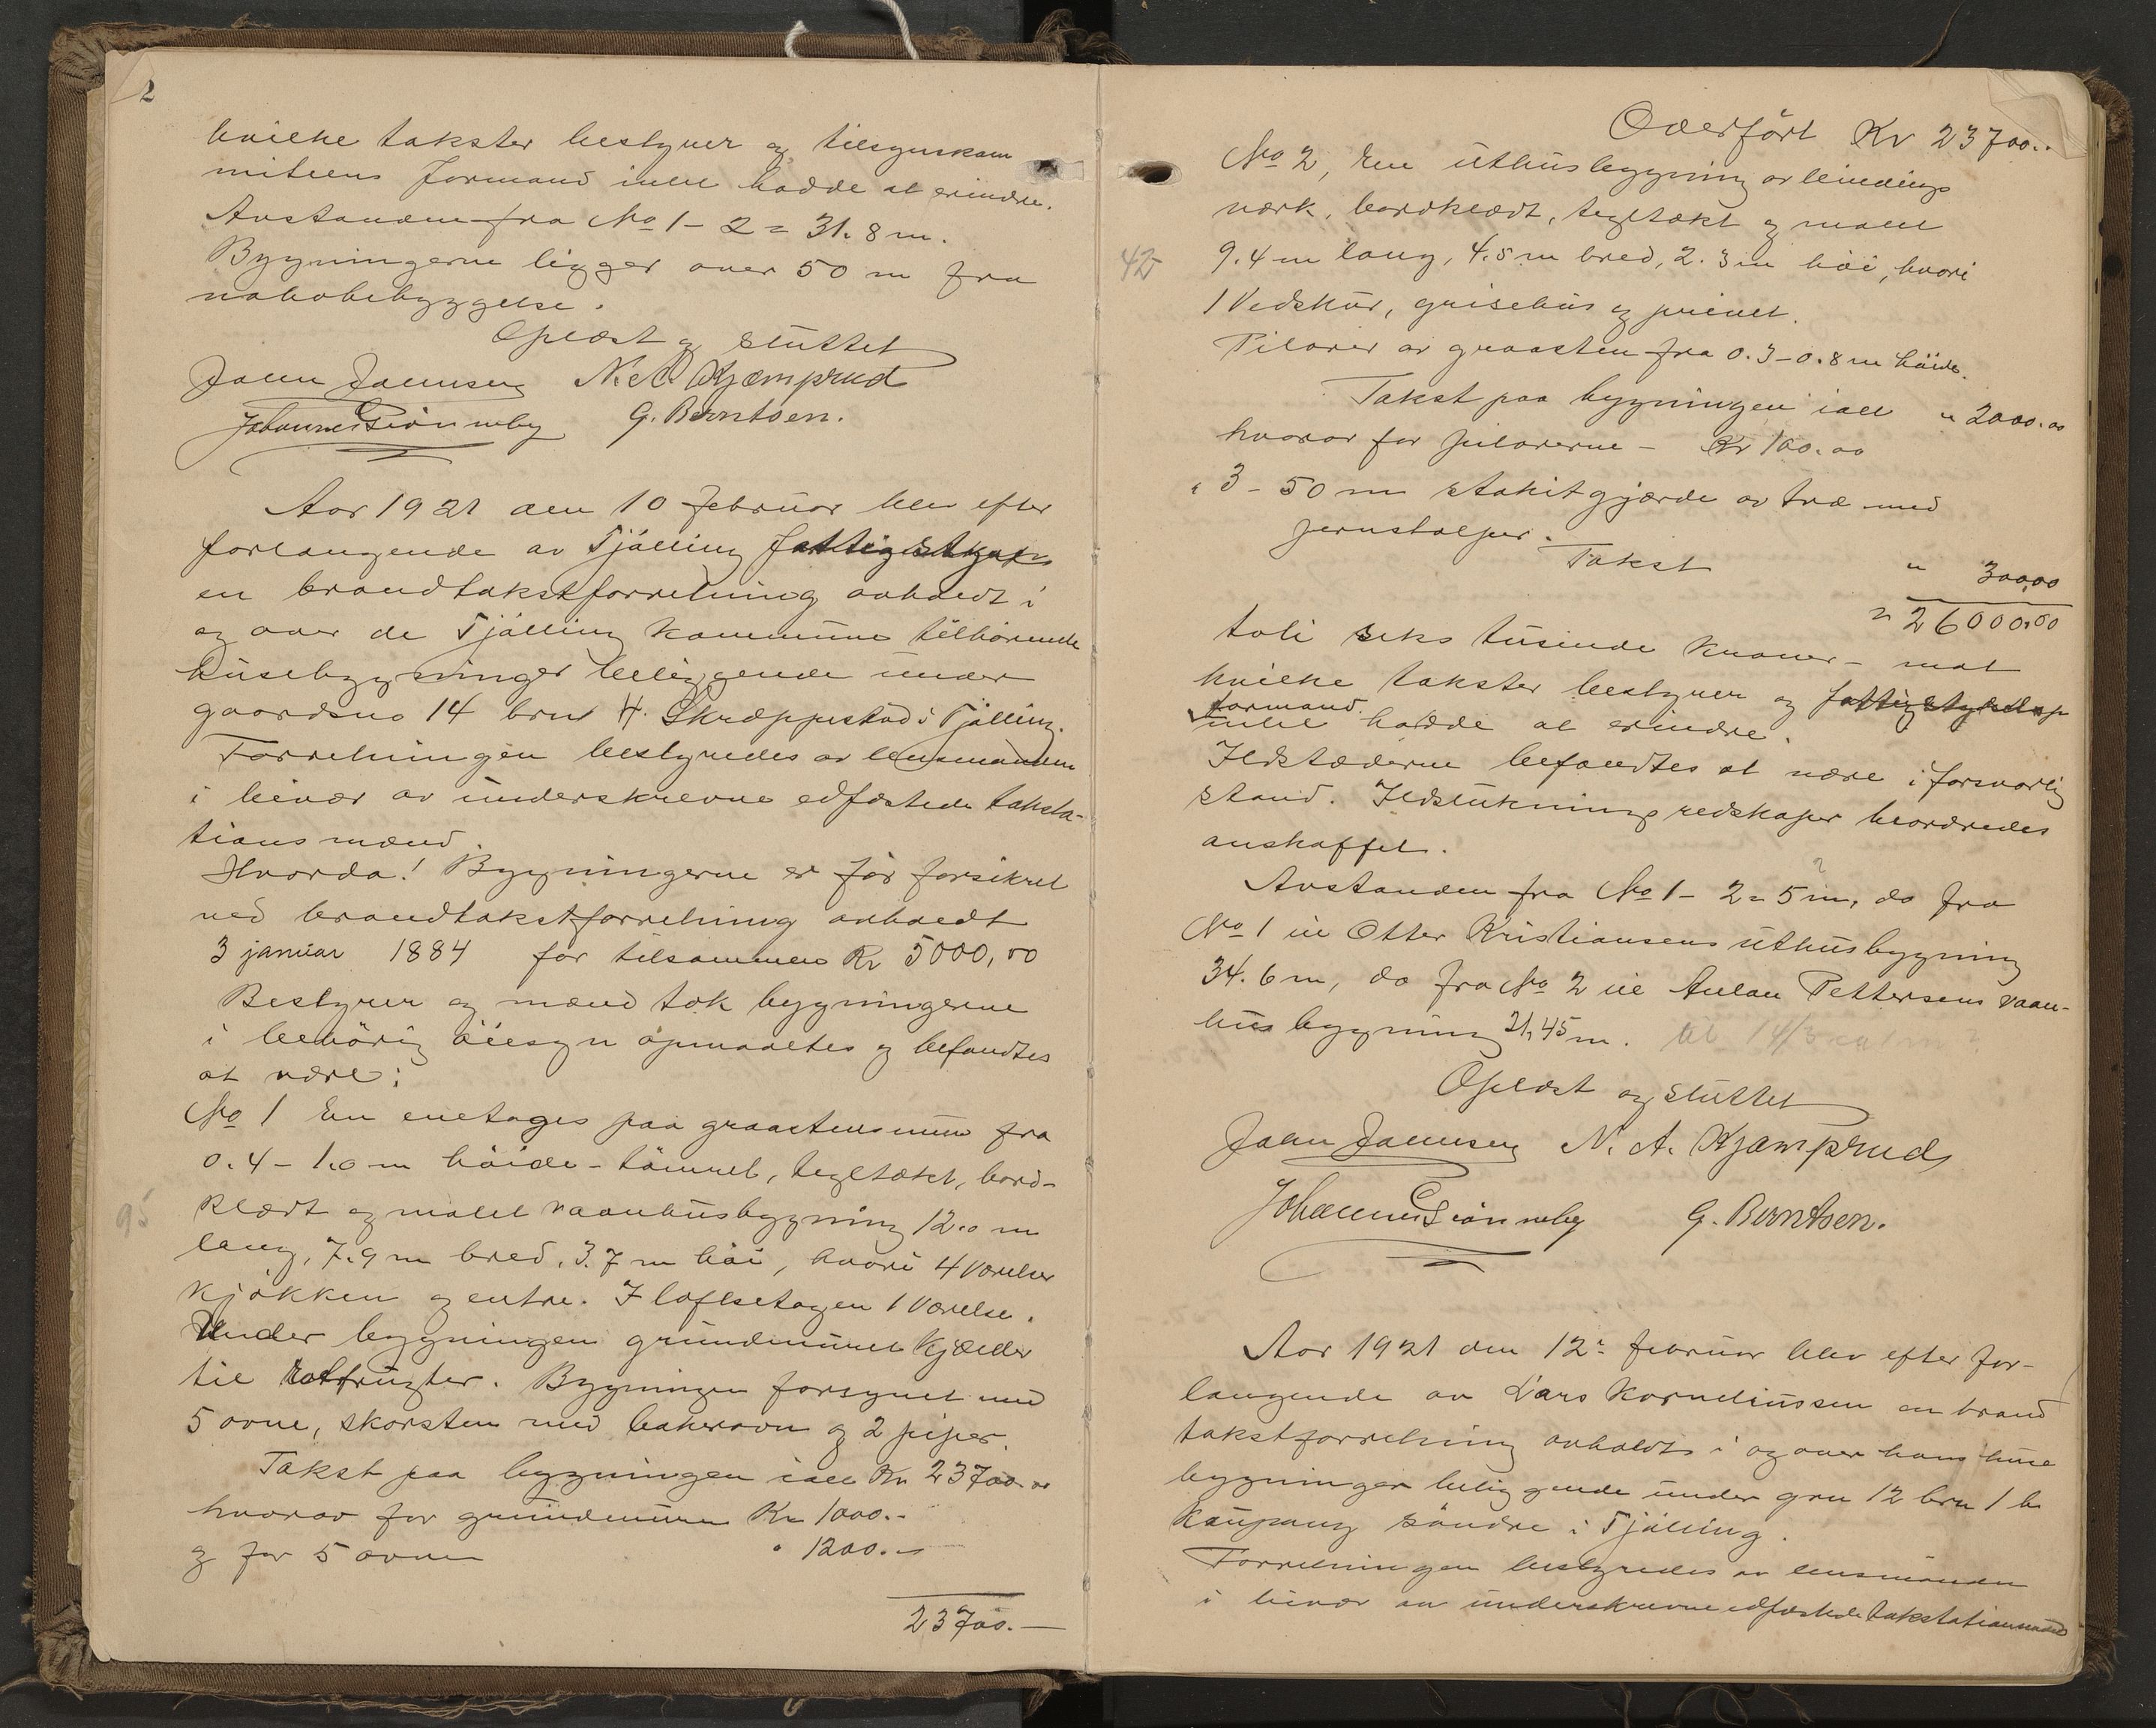 2
hvilke takster bestyrer og tilsynskom
miteens formand intet hadde at erindre.
Avstanden fra No 1 - 2 = 31.8 m.
Bygningerne ligger over 50 m fra
nabobebyggelse.
Oplæst og sluttet
N. A. Kjæmprud
G. Berntsen.
Aar 1921 den 10 februar blev efter
forlangende av Tjølling fattigstyre
en brandtakstforretning avholdt i
og over de Tjølling kommune tilhörende
husebygninger beliggende under
gaardsno 14 brno 4. Skræppestad i Tjølling.
Forretningen bestyredes av lensmanden
i bivær av underskrevne edfæstede taksta-
tionsmænd.
Hvorda! Bygningerne er för forsikret
ved brandtakstforretning avholdt
3 januar 1884 for tilsammen Kr 5000,00
Bestyrer og mænd tok bygningerne
i behörig öiesyn opmaaltes og befandtes
at være:
No 1 En enetages paa graastensmur fra
0.4 - 1.0 m höide - tömret, tegltækt, bord-
95
klædt og malet vaanhusbygning 12.0 m
lang, 7.9 m bred, 3.7 m höi, hvori 4 værelser
kjökken og entre. I loftsetagen 1 værelse.
Under bygningen grundmuret kjælder
til rotfrugter. Bygningen forsynet med
5 ovne, skorsten med bakerovn og 2 piper.
Takst paa bygningen ialt Kr 23700.00
hvorav for grundmuren Kr 1000.-
og for 5 ovner " 1200.-
23700.-
Overfört Kr 23700..
No 2, En uthusbygning av bindings
værk, bordklædt, tegltækt og malet
42
9.4 m lang, 4.5 m bred, 2.3 m höi, hvori
1 Vedskur, grisehus og privet.
Pilarer av graasten fra 0.3 - 0.8 m höide.
Takst paa bygningen ialt " 2000.00
hvorav for pilarerne - Kr 100.00
" 3 - 50 m stakitgjærde av træ med
jernstolper.
Takst " 300,00
" 26000,00
toti seks tusinde kroner - mot
hvilke takster bestyrer og fattigstyrets
formand
intet hadde at erindre.
Ildstæderne befandtes at være i forsvarlig
stand. Ildsluknings redskaper beordredes
anskaffet.
Avstanden fra No 1 - 2 = 5 m, do fra
?
No 1 til Otter Kristiansens uthusbygning
34.6 m, do fra No 2 til Anton Pettersens vaan-
hus bygning 21,45 m.
Oplæst og sluttet
N. A. Kjæmprud
G. Berntsen.
Aar 1921 den 12: februar blev efter for-
langende av Lars Korneliussen en brand
takstforretning avholdt i og over hans huse
bygninger beliggende under gno 12 brn 1 b
Kaupang söndre i Tjølling.
Forretningen bestyredes av lensmanden
i bivær av underskrevne edfæstede takstationsmænd